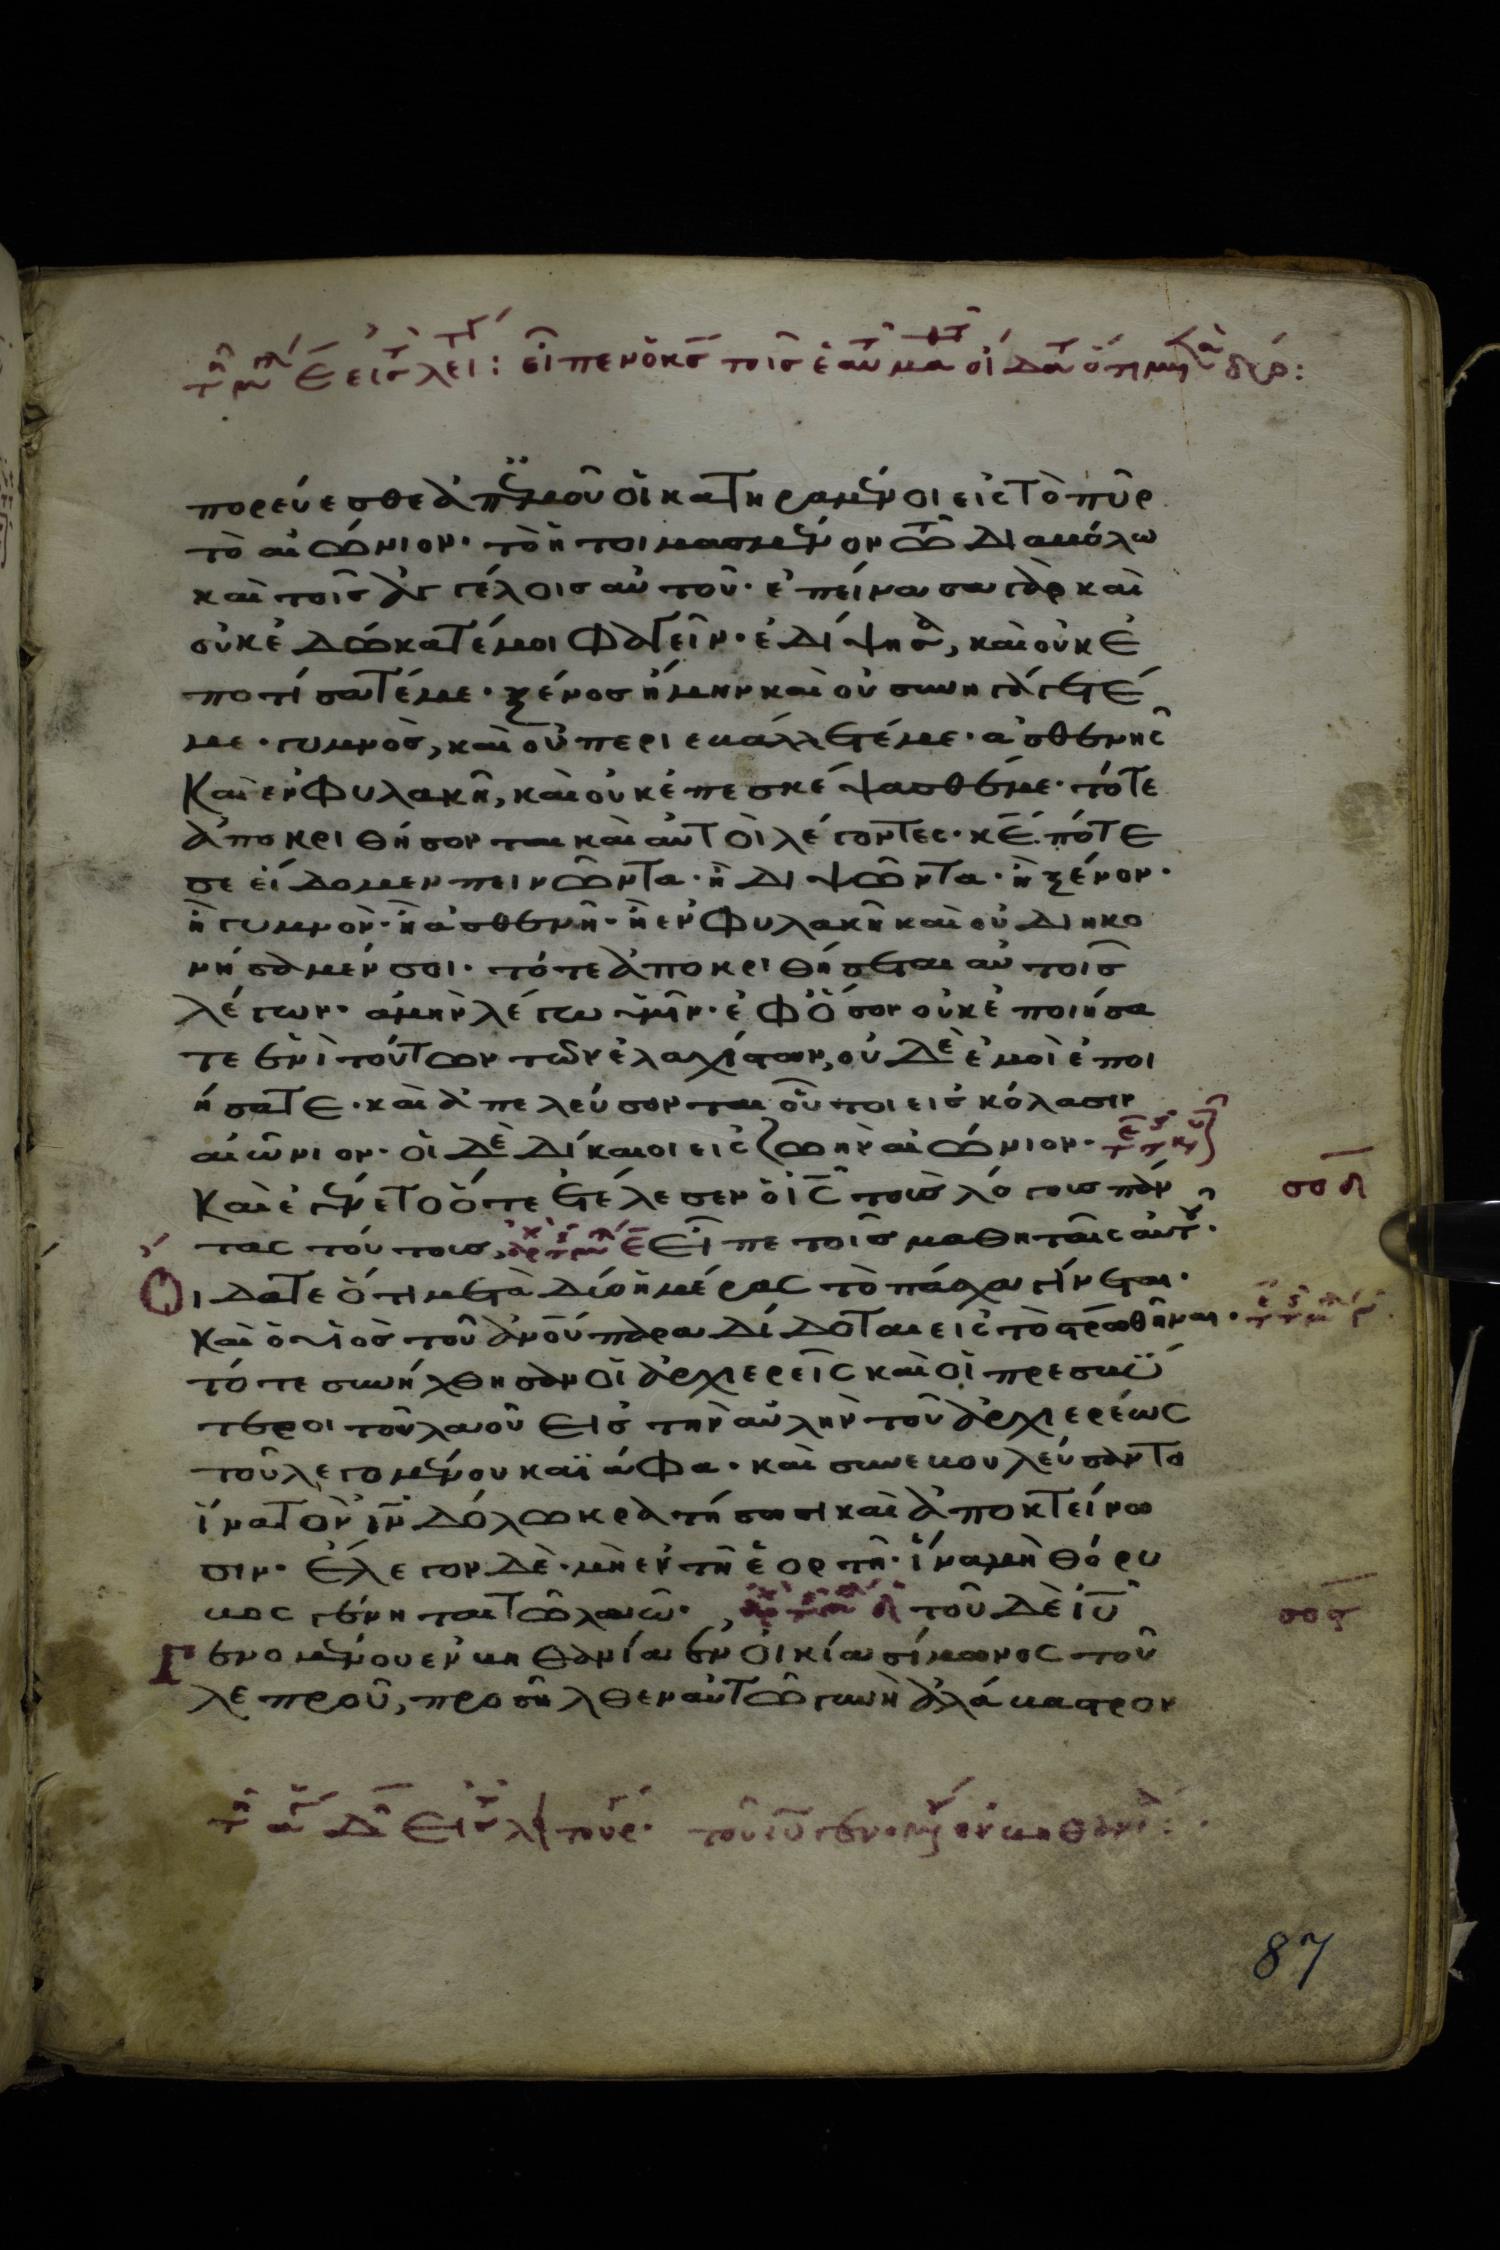 πορεύεσθε ἀπ' ἐμοῦ οἱ κατηραμένοι εἰς τὸ πῦρ
τὸ αἰώνιον· τὸ ἡτοιμασμένον τῶ διαβόλω
καὶ τοῖς ἀγγέλοις αὐτοῦ· ἐπείνασα γὰρ καὶ
οὐκ ἐδώκατέ μοι φαγεῖν· ἐδίψησα, καὶ οὐκ ἐ
ποτίσατέ με· ξένος ἤμην καὶ οὐ συνηγάγετέ
με· γυμνὸς, καὶ οὐ περιεβάλλετέ με· ἀσθενὴς
καὶ ἐν φυλακῆ, καὶ οὐκ ἐπεσκέψασθέ με· τότε
ἀποκριθήσονται καὶ αὐτοὶ λέγοντες· κ̅ε̅ πότε
σε εἴδομεν πεινῶντα· ἢ διψῶντα· ἢ ξένον·
ἢ γυμνὸν· ἢ ἀσθενῆ· ἢ ἐν φυλακῆ καὶ οὐ διηκο
νήσαμέν σοι· τότε ἀποκριθήσεται αὐτοῖς
λέγων· ἀμὴν λέγω ὑμῖν· ἐφ' ὅσον οὐκ ἐποιήσα
τε ἑνὶ τούτων τῶν ἐλαχίστων, οὐδὲ ἐμοὶ ἐποι
ήσατε· καὶ ἀπελεύσονται οὗτοι εἰς κόλασιν
αἰώνιον· οἱ δὲ δίκαιοι εἰς ζωὴν αἰώνιον·
καὶ ἐγένετο ὅτε ἐτέλεσεν ὁ ι̅ς̅ τοὺς λόγους πάν
τας τούτους, εἶπε τοῖς μαθηταῖς αὐτοῦ·
Οἴδατε ὅτι μετὰ δύο ἡμέρας τὸ πάσχα γίνεται·
καὶ ὁ υἱὸς τοῦ ἀνου παραδίδοται εἰς τὸ στρωθῆναι·
τότε συνήχθησαν οἱ ἀρχιερεῖς καὶ οἱ πρεσβύ
τεροι τοῦ λαοῦ εἰς τὴν αὐλὴν τοῦ ἀρχιερέως
τοῦ λεγομένου καϊάφα· καὶ συνεβουλεύσαντο
ἵνα τὸν ι̅ν̅ δόλω κρατήσωσι καὶ ἀποκτείνω
σιν· ἔλεγον δὲ· μὴ ἐν τῆ ἑορτῆ· ἵνα μὴ θόρυ
βος γένηται τῶ λαῶ· τοῦ δὲ ι̅υ̅
Γενομένου ἐν βηθανία ἐν οἰκία σίμωνος τοῦ
λεπροῦ, προσῆλθεν αὐτῶ γυνὴ ἀλάβαστρον
87